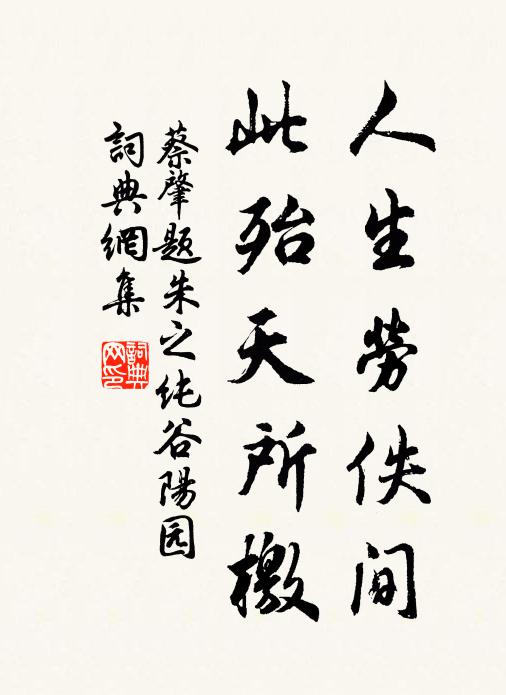 人生勞佚间
此殆天所檄
蔡肇题朱之纯谷陽园
詞典網集
詞典网印